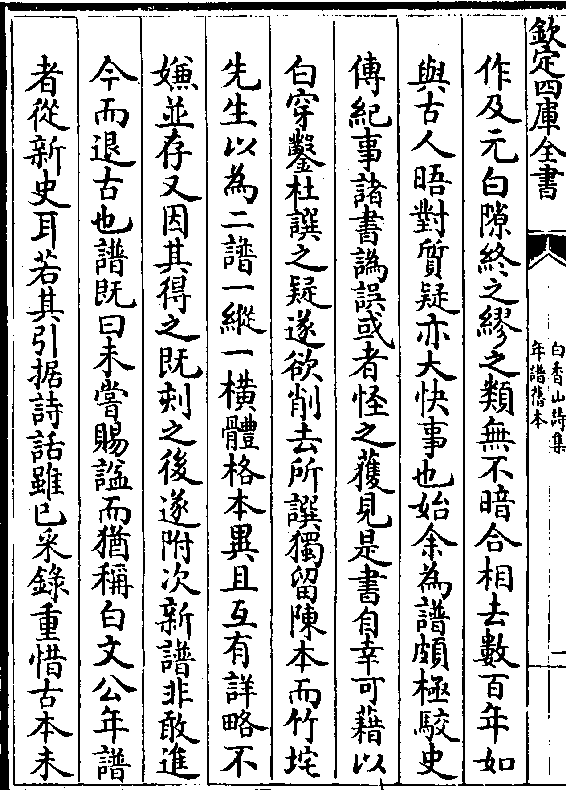 欽定四庫全書
白香山詩集
年譜舊本
一
作及元白隙終之繆之類無不暗合相去數百年如
與古人晤對質疑亦大快事也始余為譜頗極駮史
傳紀事諸書譌誤或者怪之獲見是書自幸可藉以
白穿鑿杜譔之疑遂欲削去所譔獨留陳本而竹垞
先生以為二譜一縱一橫體格本異且互有詳略不
嫌並存又因其得之既刻之後遂附次新譜非敢進
今而退古也譜既曰未嘗賜謚而猶稱白文公年譜
者從新史耳若其引据詩話雖已采錄重惜古本未